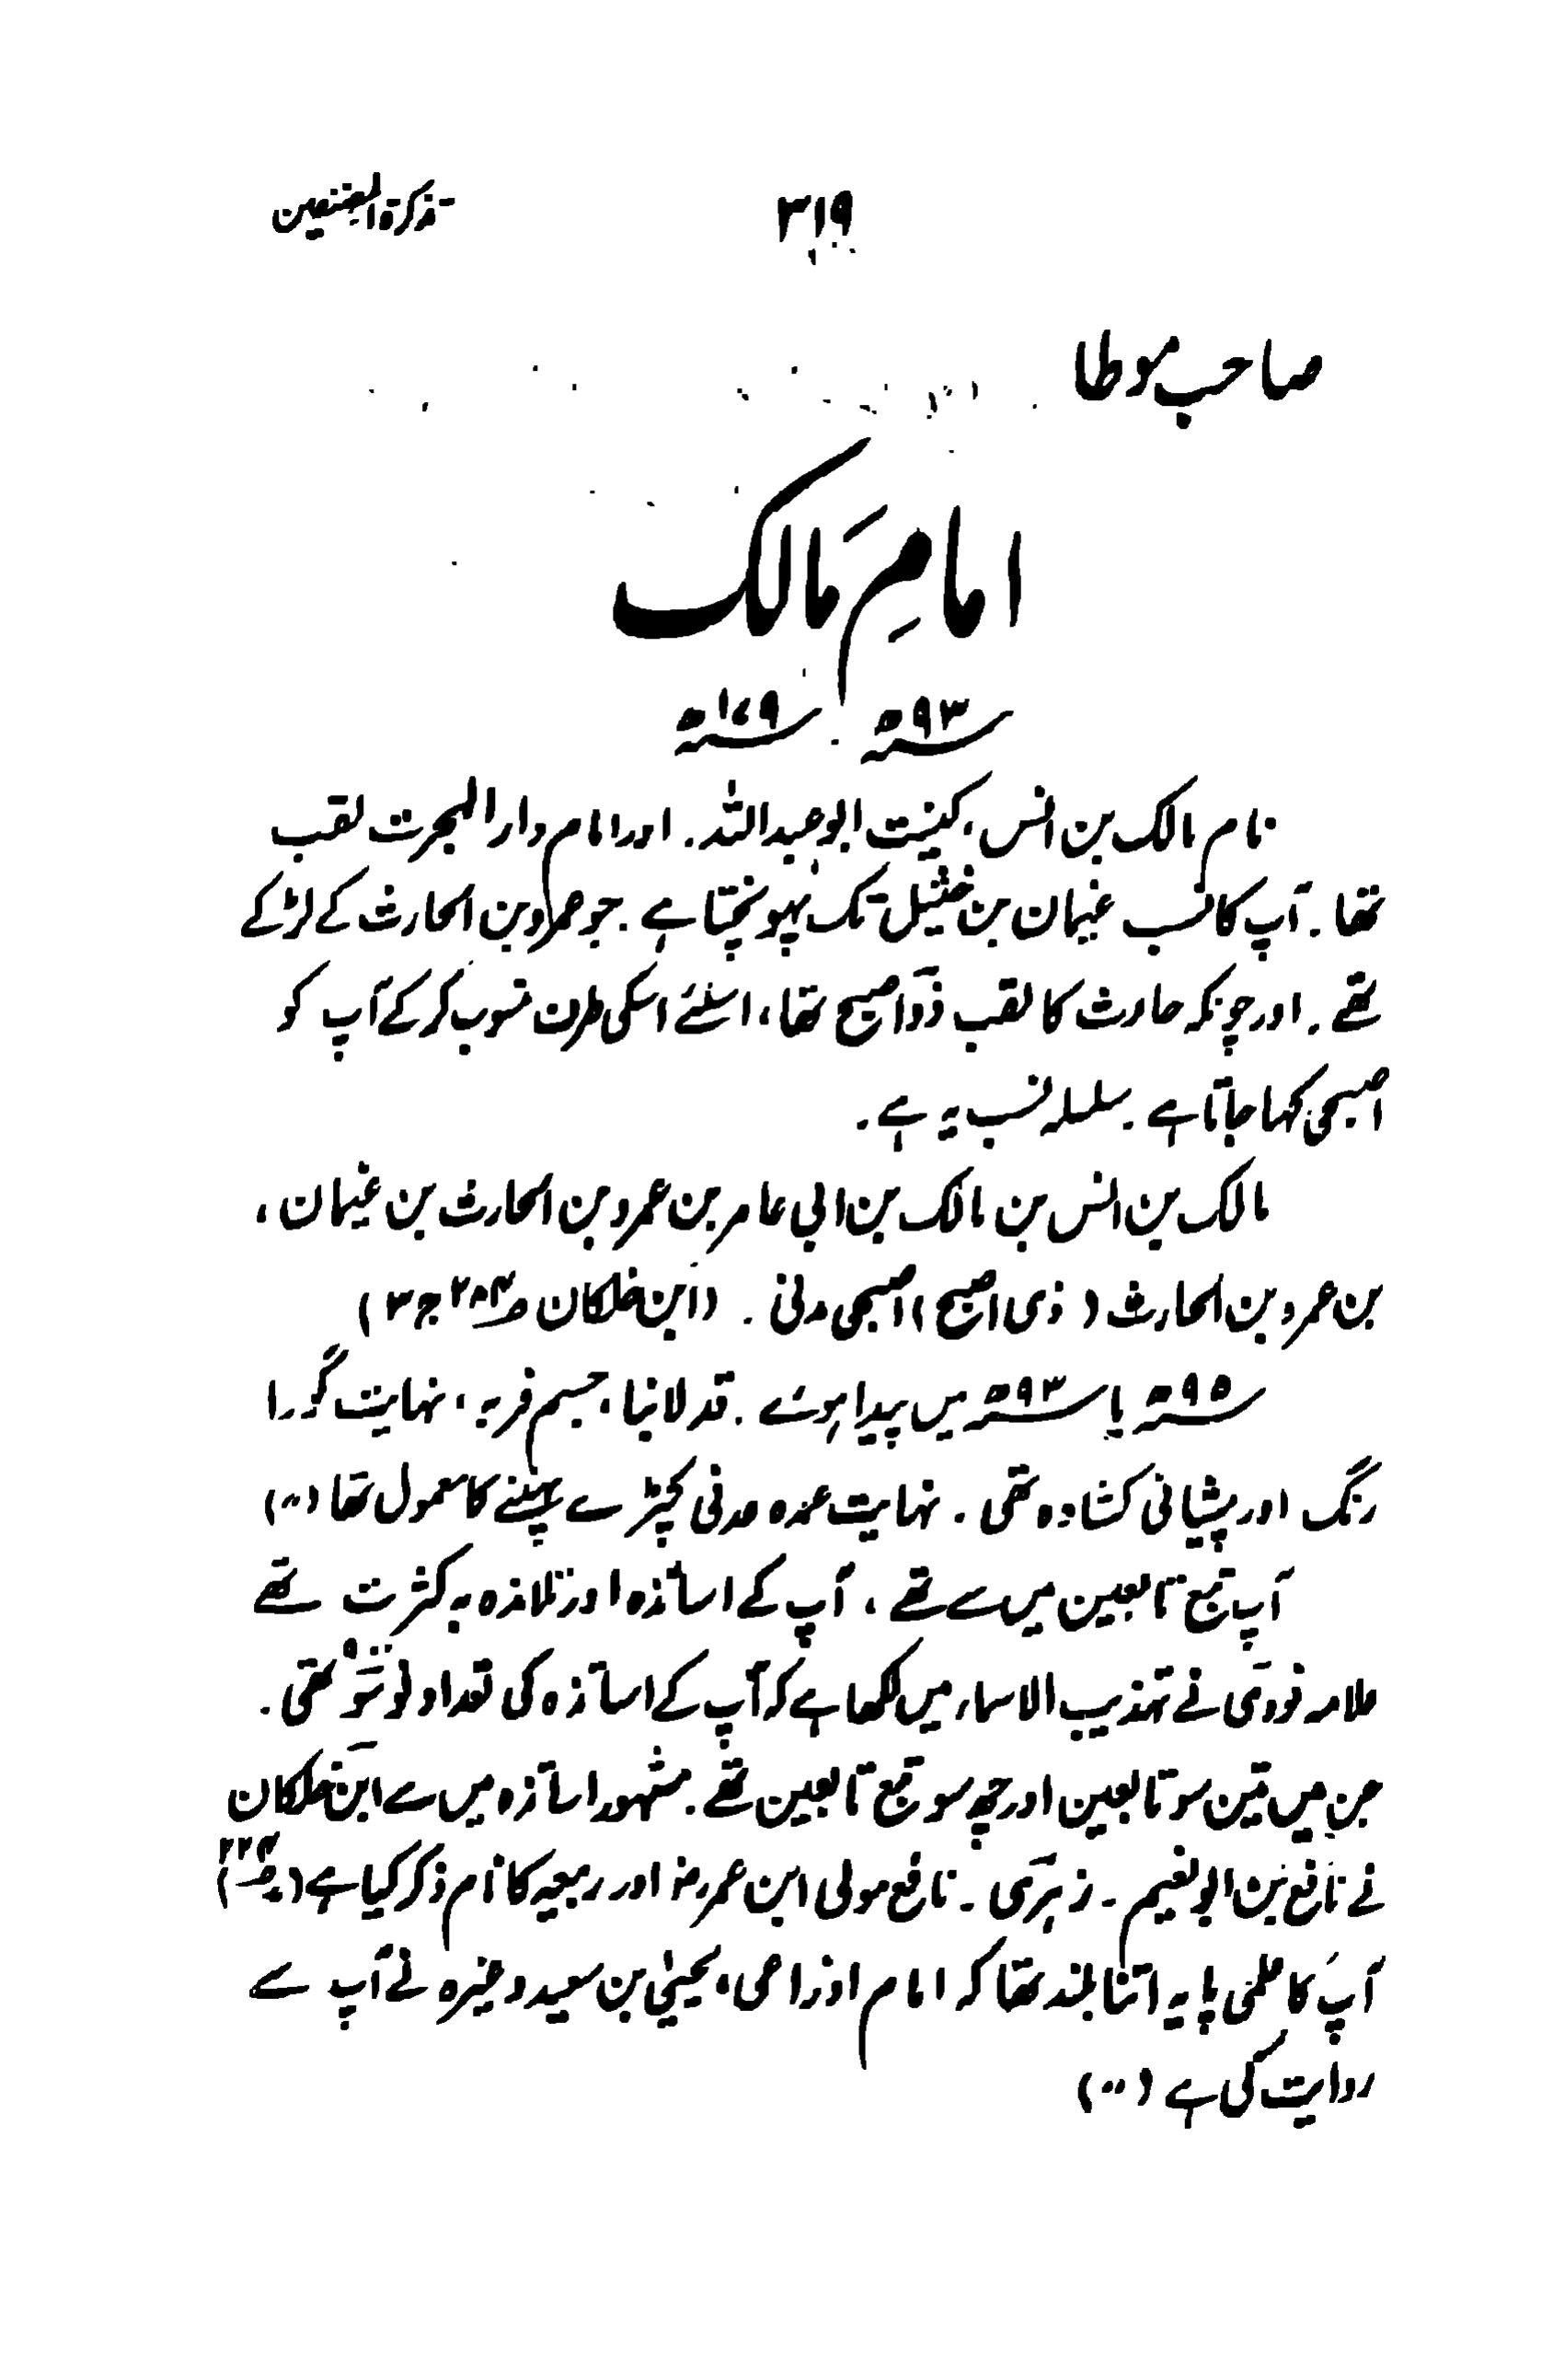 تذکرۃ المصنفین
۳۱۹
صاحب موطا
امامِ مالک
۹۳ھ ۔ ۱۷۹ھ
نام مالک بن انس، کنیت ابو عبداللہ ۔ اور امام دارالہجرت لقب
تھا ۔ آپ کا نسب غیمان بن خثیل تک پہونچتا ہے ۔ جو عمرو بن الحارث کے لڑکے
تھے ۔ اور چونکہ حارث کا لقب ذو اصبح تھا، اسلئے اسکی طرف منسوب کرکے آپ کو
اصبحی کہا جاتا ہے ۔ سلسلہ نسب یہ ہے ۔
مالک بن انس بن مالک بن ابی عامر بن عمرو بن الحارث بن غیمان ،
بن عمرو بن الحارث ( ذی اصبح ) اصبحی مدنی ۔ (ابن خلکان ص۲۸۴ ج۳ )
۹۵ھ یا ۹۳ھ میں پیدا ہوئے ۔ قد لانبا ، جسم فربہ ، نہایت گورا
رنگ اور پیشانی کشادہ تھی ۔ نہایت عمدہ عدنی کپڑے پہننے کا معمول تھا (〃)
آپ تبع تابعین میں سے تھے ، آپ کے اساتذہ اور تلامذہ بہ کثرت تھے
علامہ نووی نے تہذیب الاسماء میں لکھا ہے کہ آپ کے اساتذہ کی تعداد نو سو ۹۰۰ تھی ۔
جن میں تین سو تابعین اور چھ سو تبع تابعین تھے ۔ مشہور اساتذہ میں سے ابن خلکان
نے نافع بن ابو نعیم ۔ زہری ۔ نافع مولی ابن عمر رض اور ربیعہ کا نام ذکر کیا ہے (ص۲۲۴)
آپ کا علمی پایہ اتنا بلند تھا کہ امام اوزاعی ، یحییٰ بن سعید وغیرہ نے آپ سے
روایت کی ہے (〃)